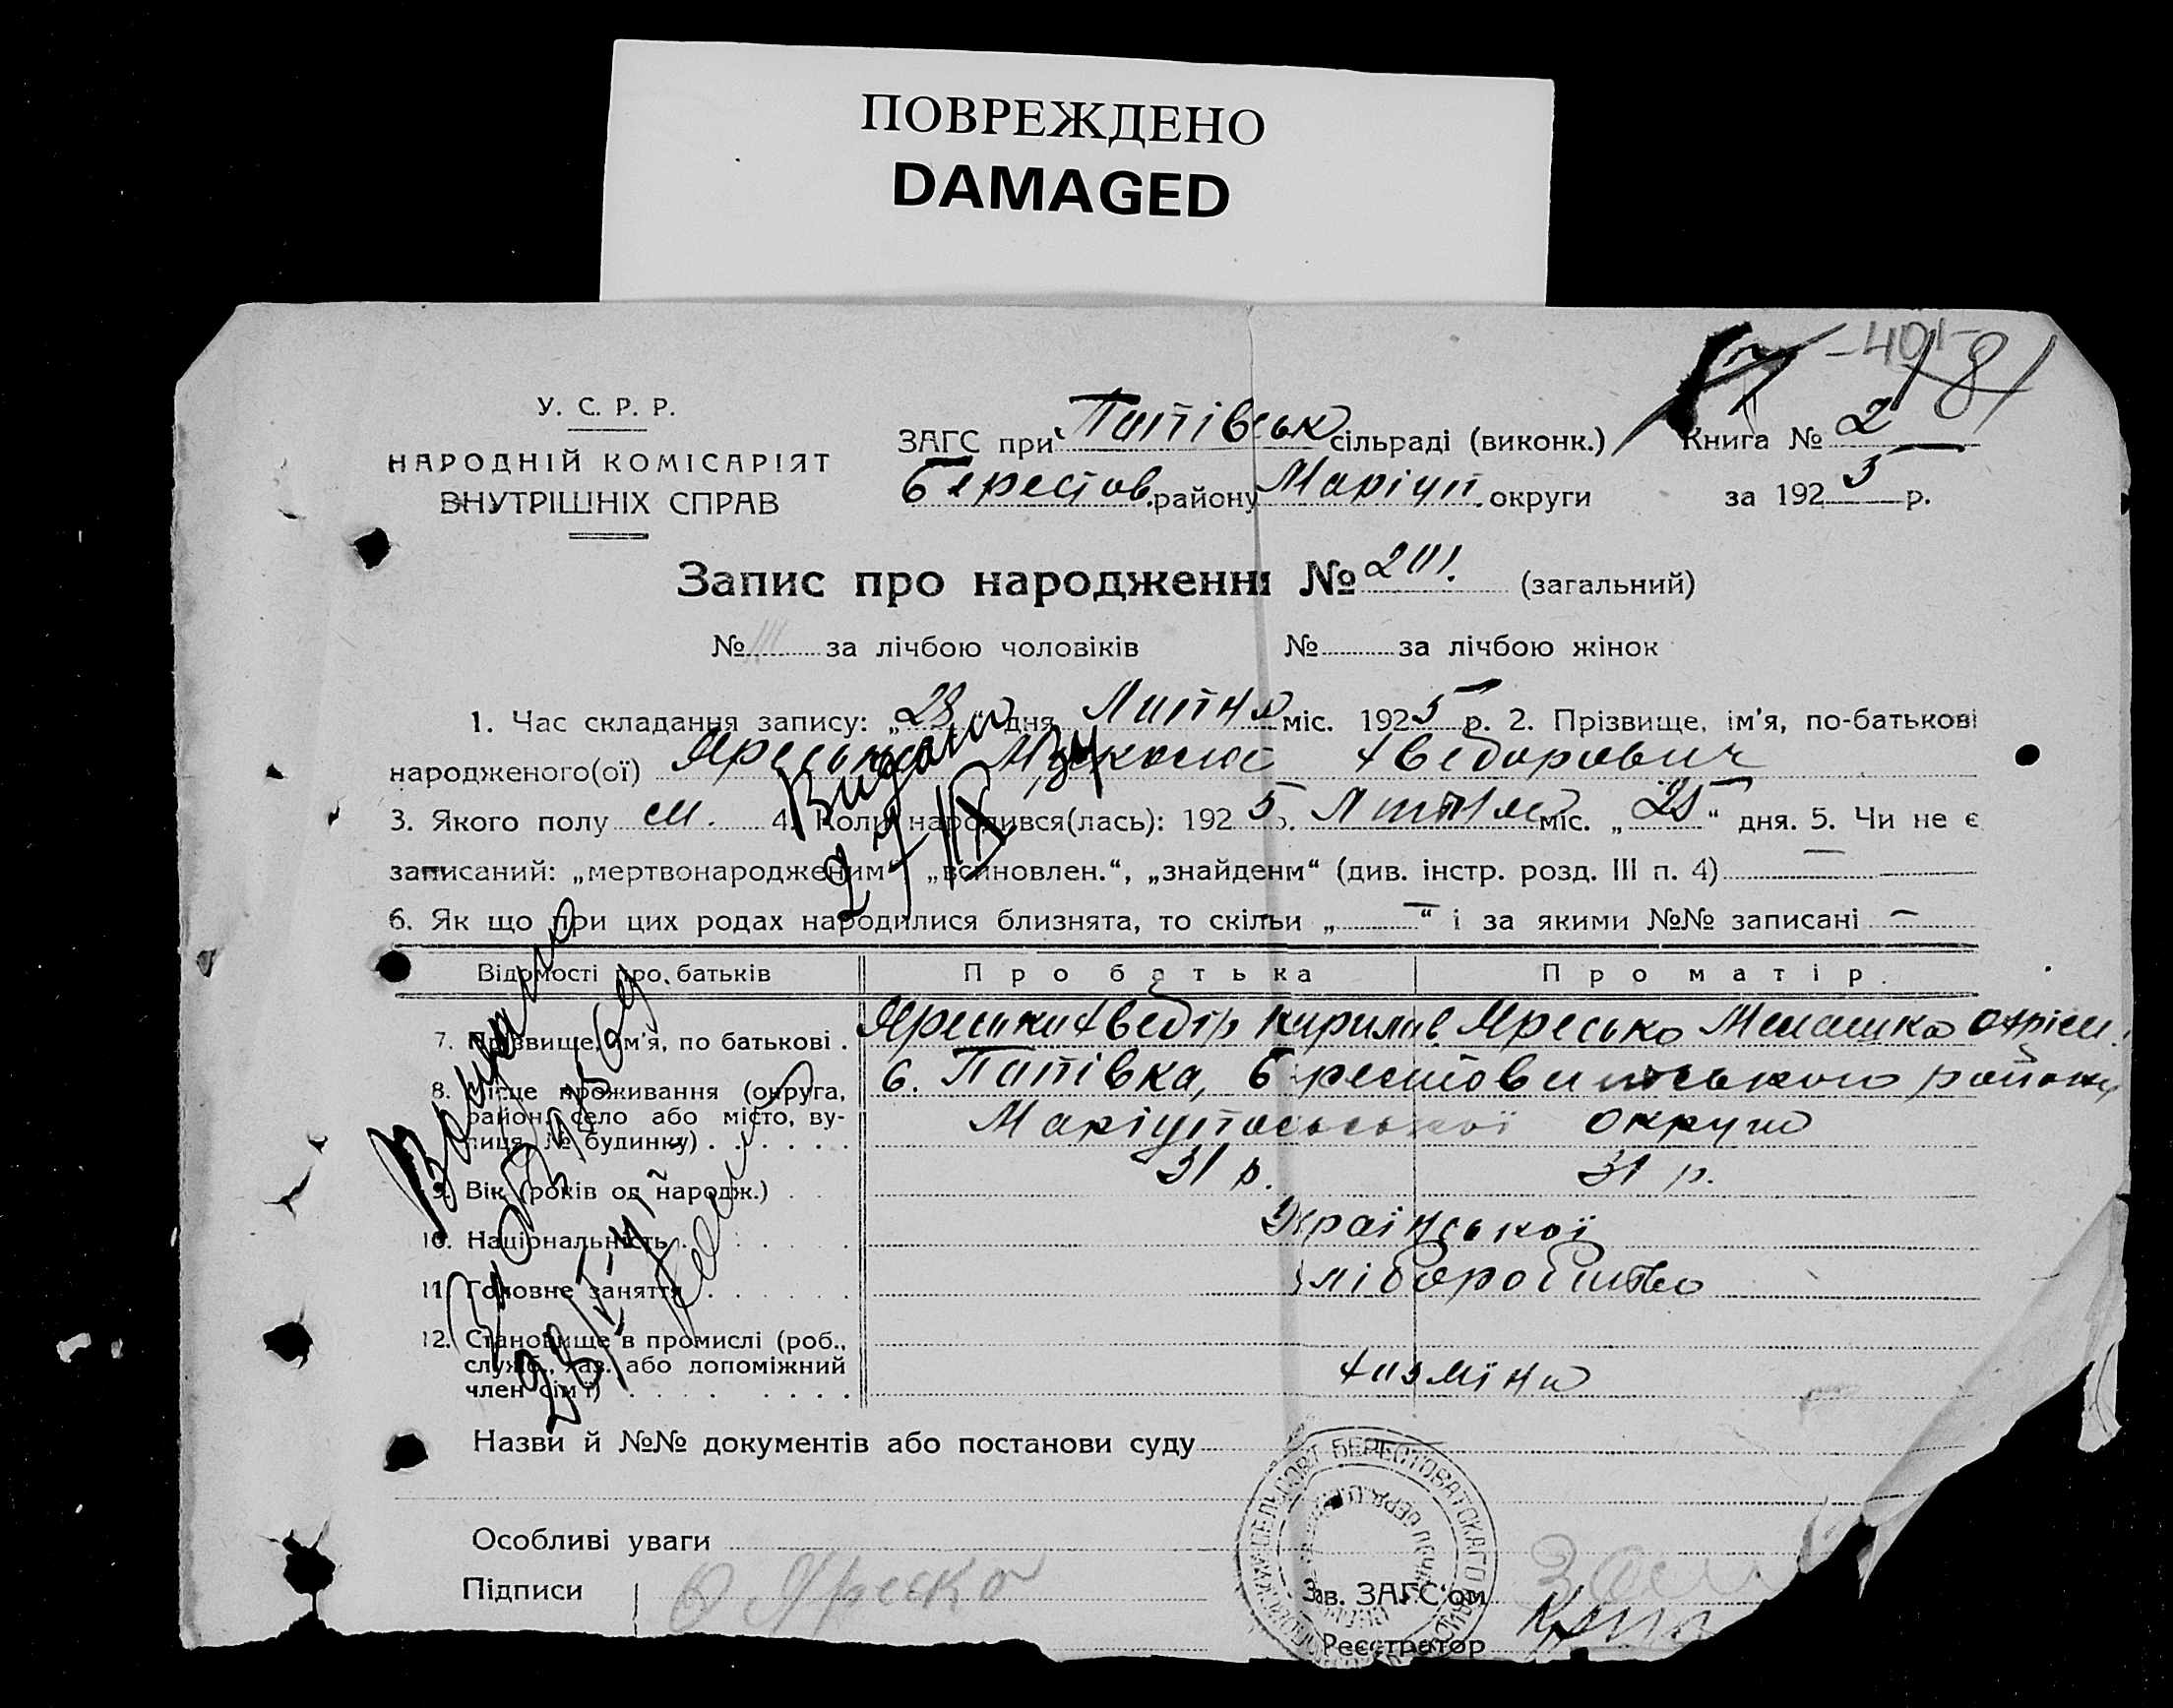 ПОВРЕЖДЕНО
DAMAGED
401
181
У. С. Р. Р.
НАРОДНІЙ КОМІСАРІЯТ
ВНУТРІШНІХ СПРАВ
ЗАГС при Попівськ сільраді (виконк.)
Книга № 2
Берестов. району Маріуп. округи
за 1925 р.
Запис про народженні № 201. (загальний)
№ 111 за лічбою чоловіків № за лічбою жінок
1. Час складання запису: „28“ дня Липня міс. 1925 р. 2. Прізвище, ім'я, по-батькові
народженого(ої) Яресько Микола Хведорович
3. Якого полу м. 4. Коли народився(лась): 1925 р. Липня міс. „25“ дня. 5. Чи не є
записаний: „мертвонародженим“ „всиновлен.“, „знайденм“ (див. інстр. розд. III п. 4) —
6. Як що при цих родах народилися близнята, то скільки „—“ і за якими №№ записані —
Видано
27/IX
Відомості про батьків Про батька Про матір
7. Прізвище, ім'я, по батькові . Яресько Хведір Кирилов. Яресько Мелашка
8. Місце проживання (округа, район, село або місто, вулиця, № будинку) с. Попівка, Берестов района
Маріупольської округи
9. Вік (років од народж.) 31 р. 31 р.
10. Національність Української
11. Головне заняття хліборобство
12. Становище в промислі (роб., служб., хаз. або допоміжний член сім'ї) хазяїни
Назви й №№ документів або постанови суду
Особливі уваги
Підписи Яреско
Зав. ЗАГС'ом
Реєстратор
СЕЛЬСОВЕТ БЕРЕСТОВАТСКАГО